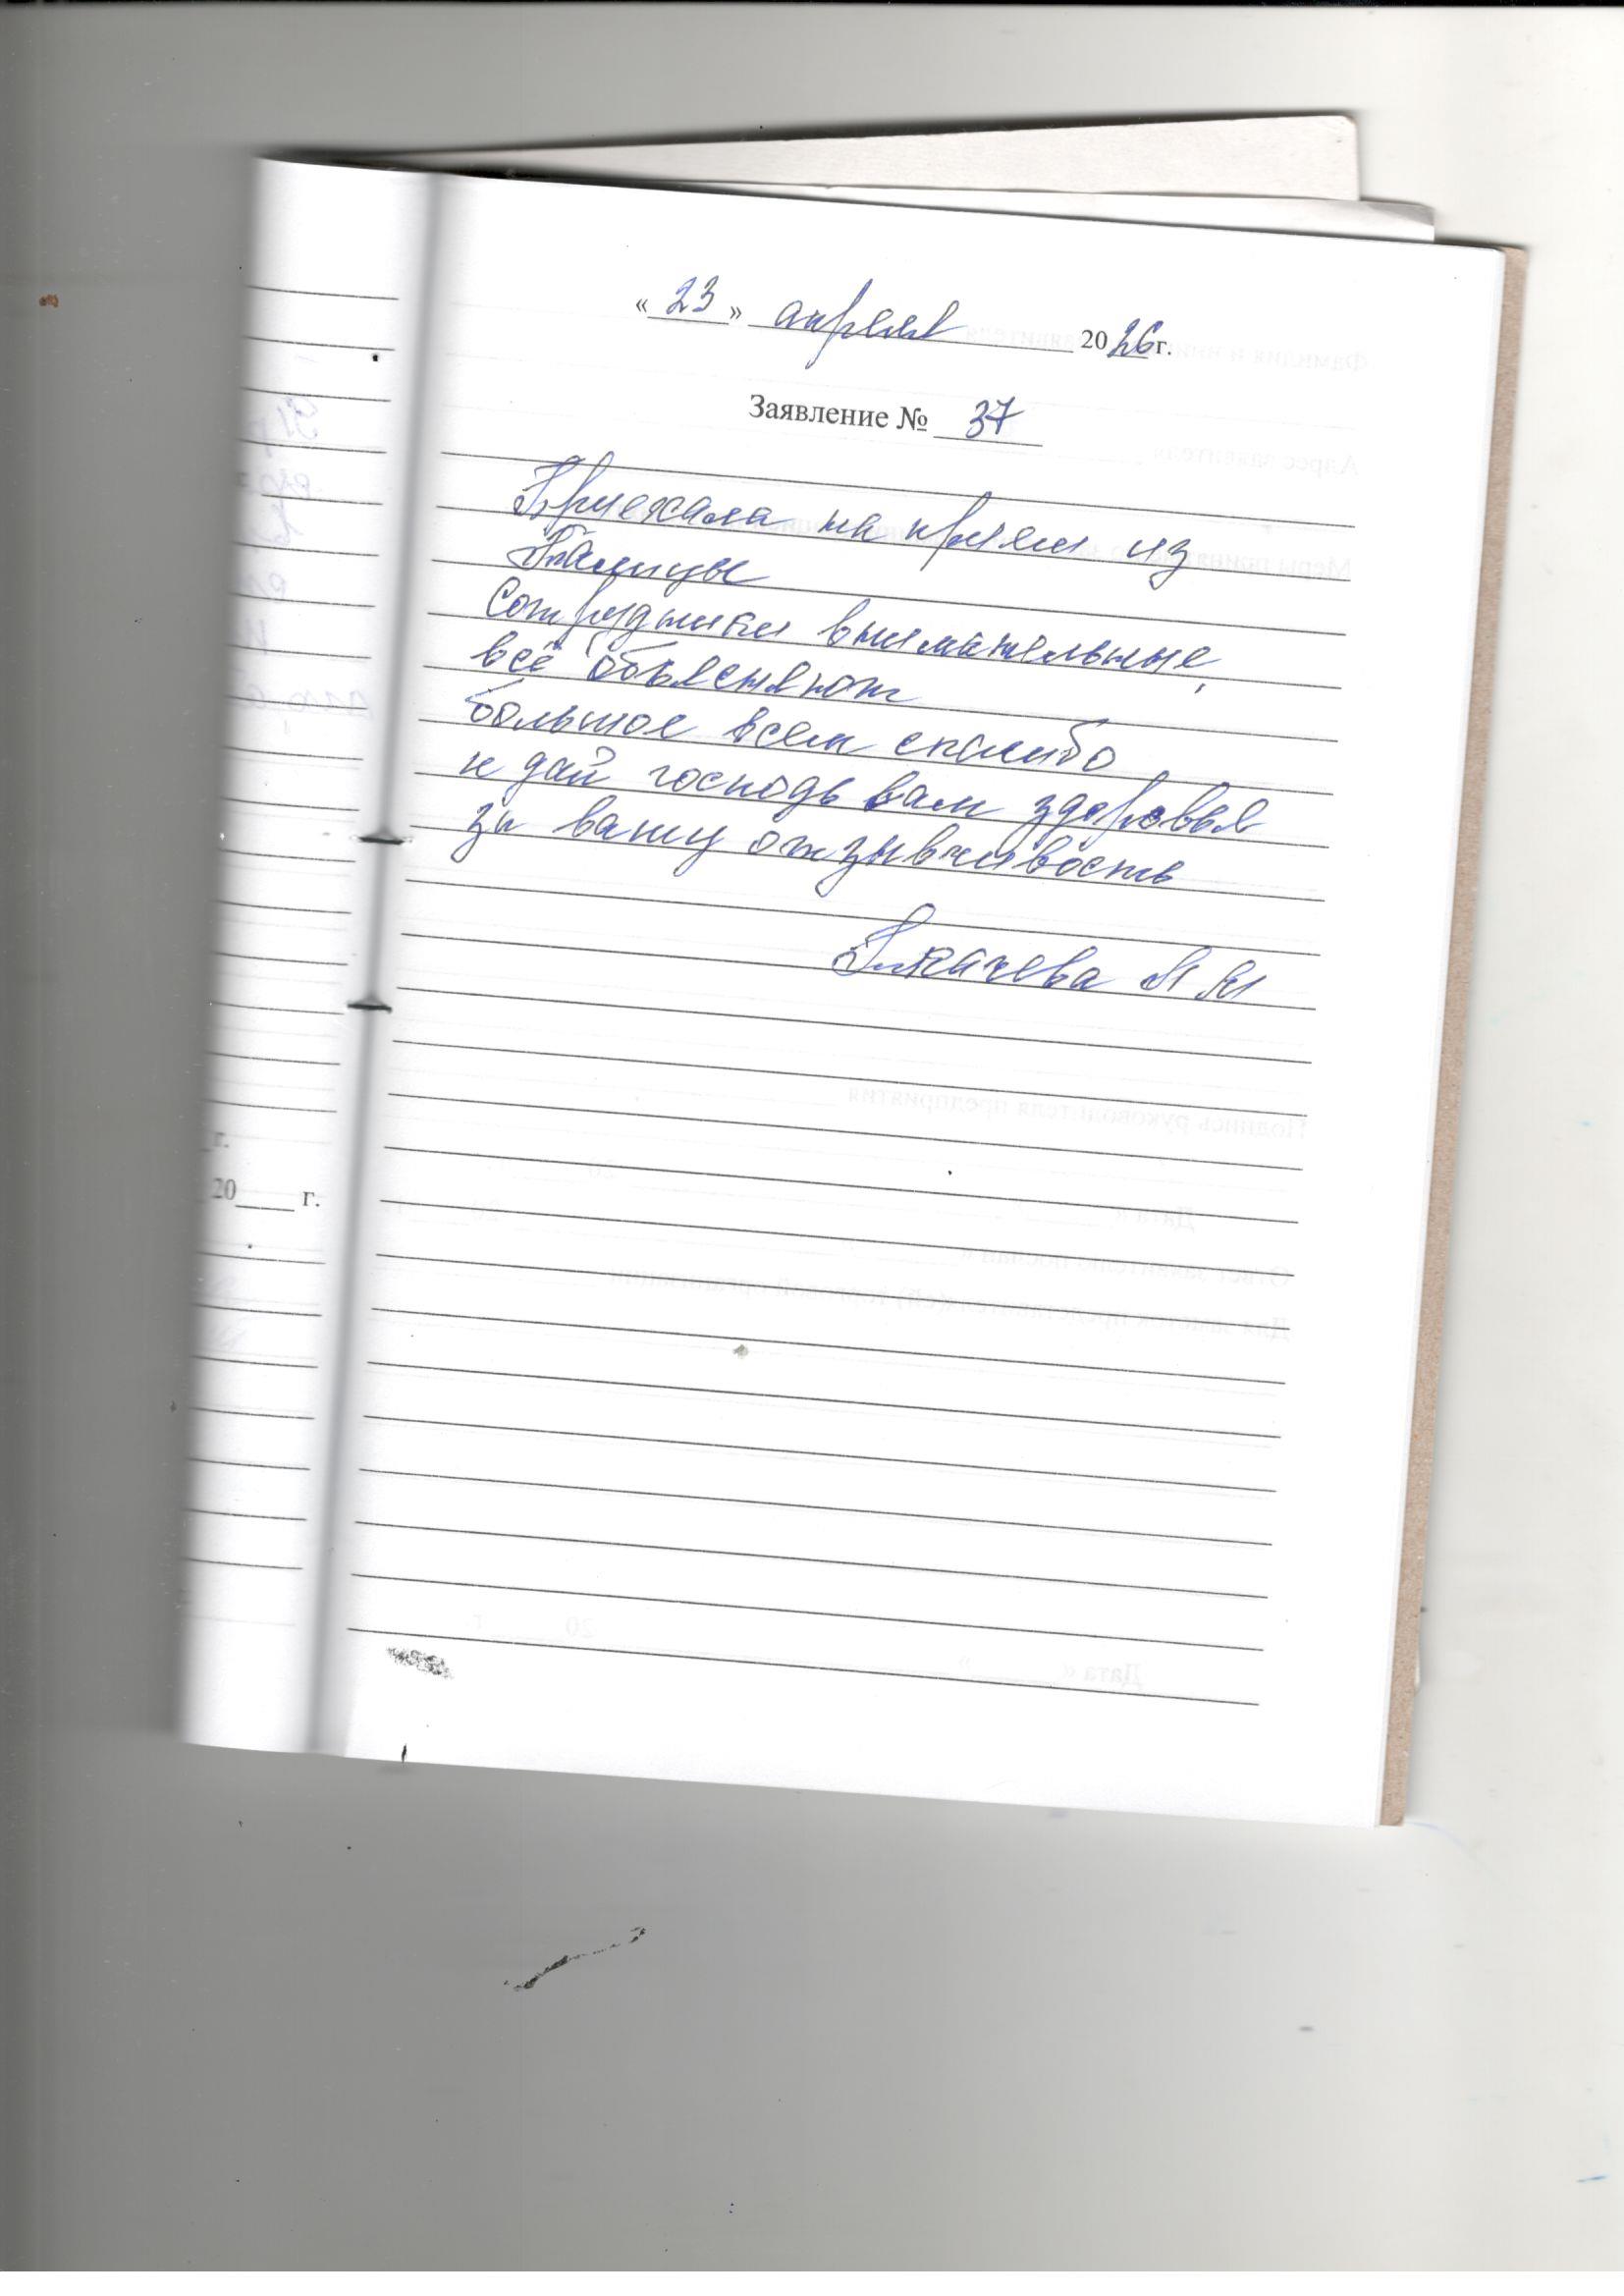 « 23 » апреля 2026 г.
Заявление № 37
Приехала на прием из
Талицы
Сотрудники внимательные,
всё объясняют
большое всем спасибо
и дай господь вам здоровья
за вашу отзывчивость
Ткачева
20 г.